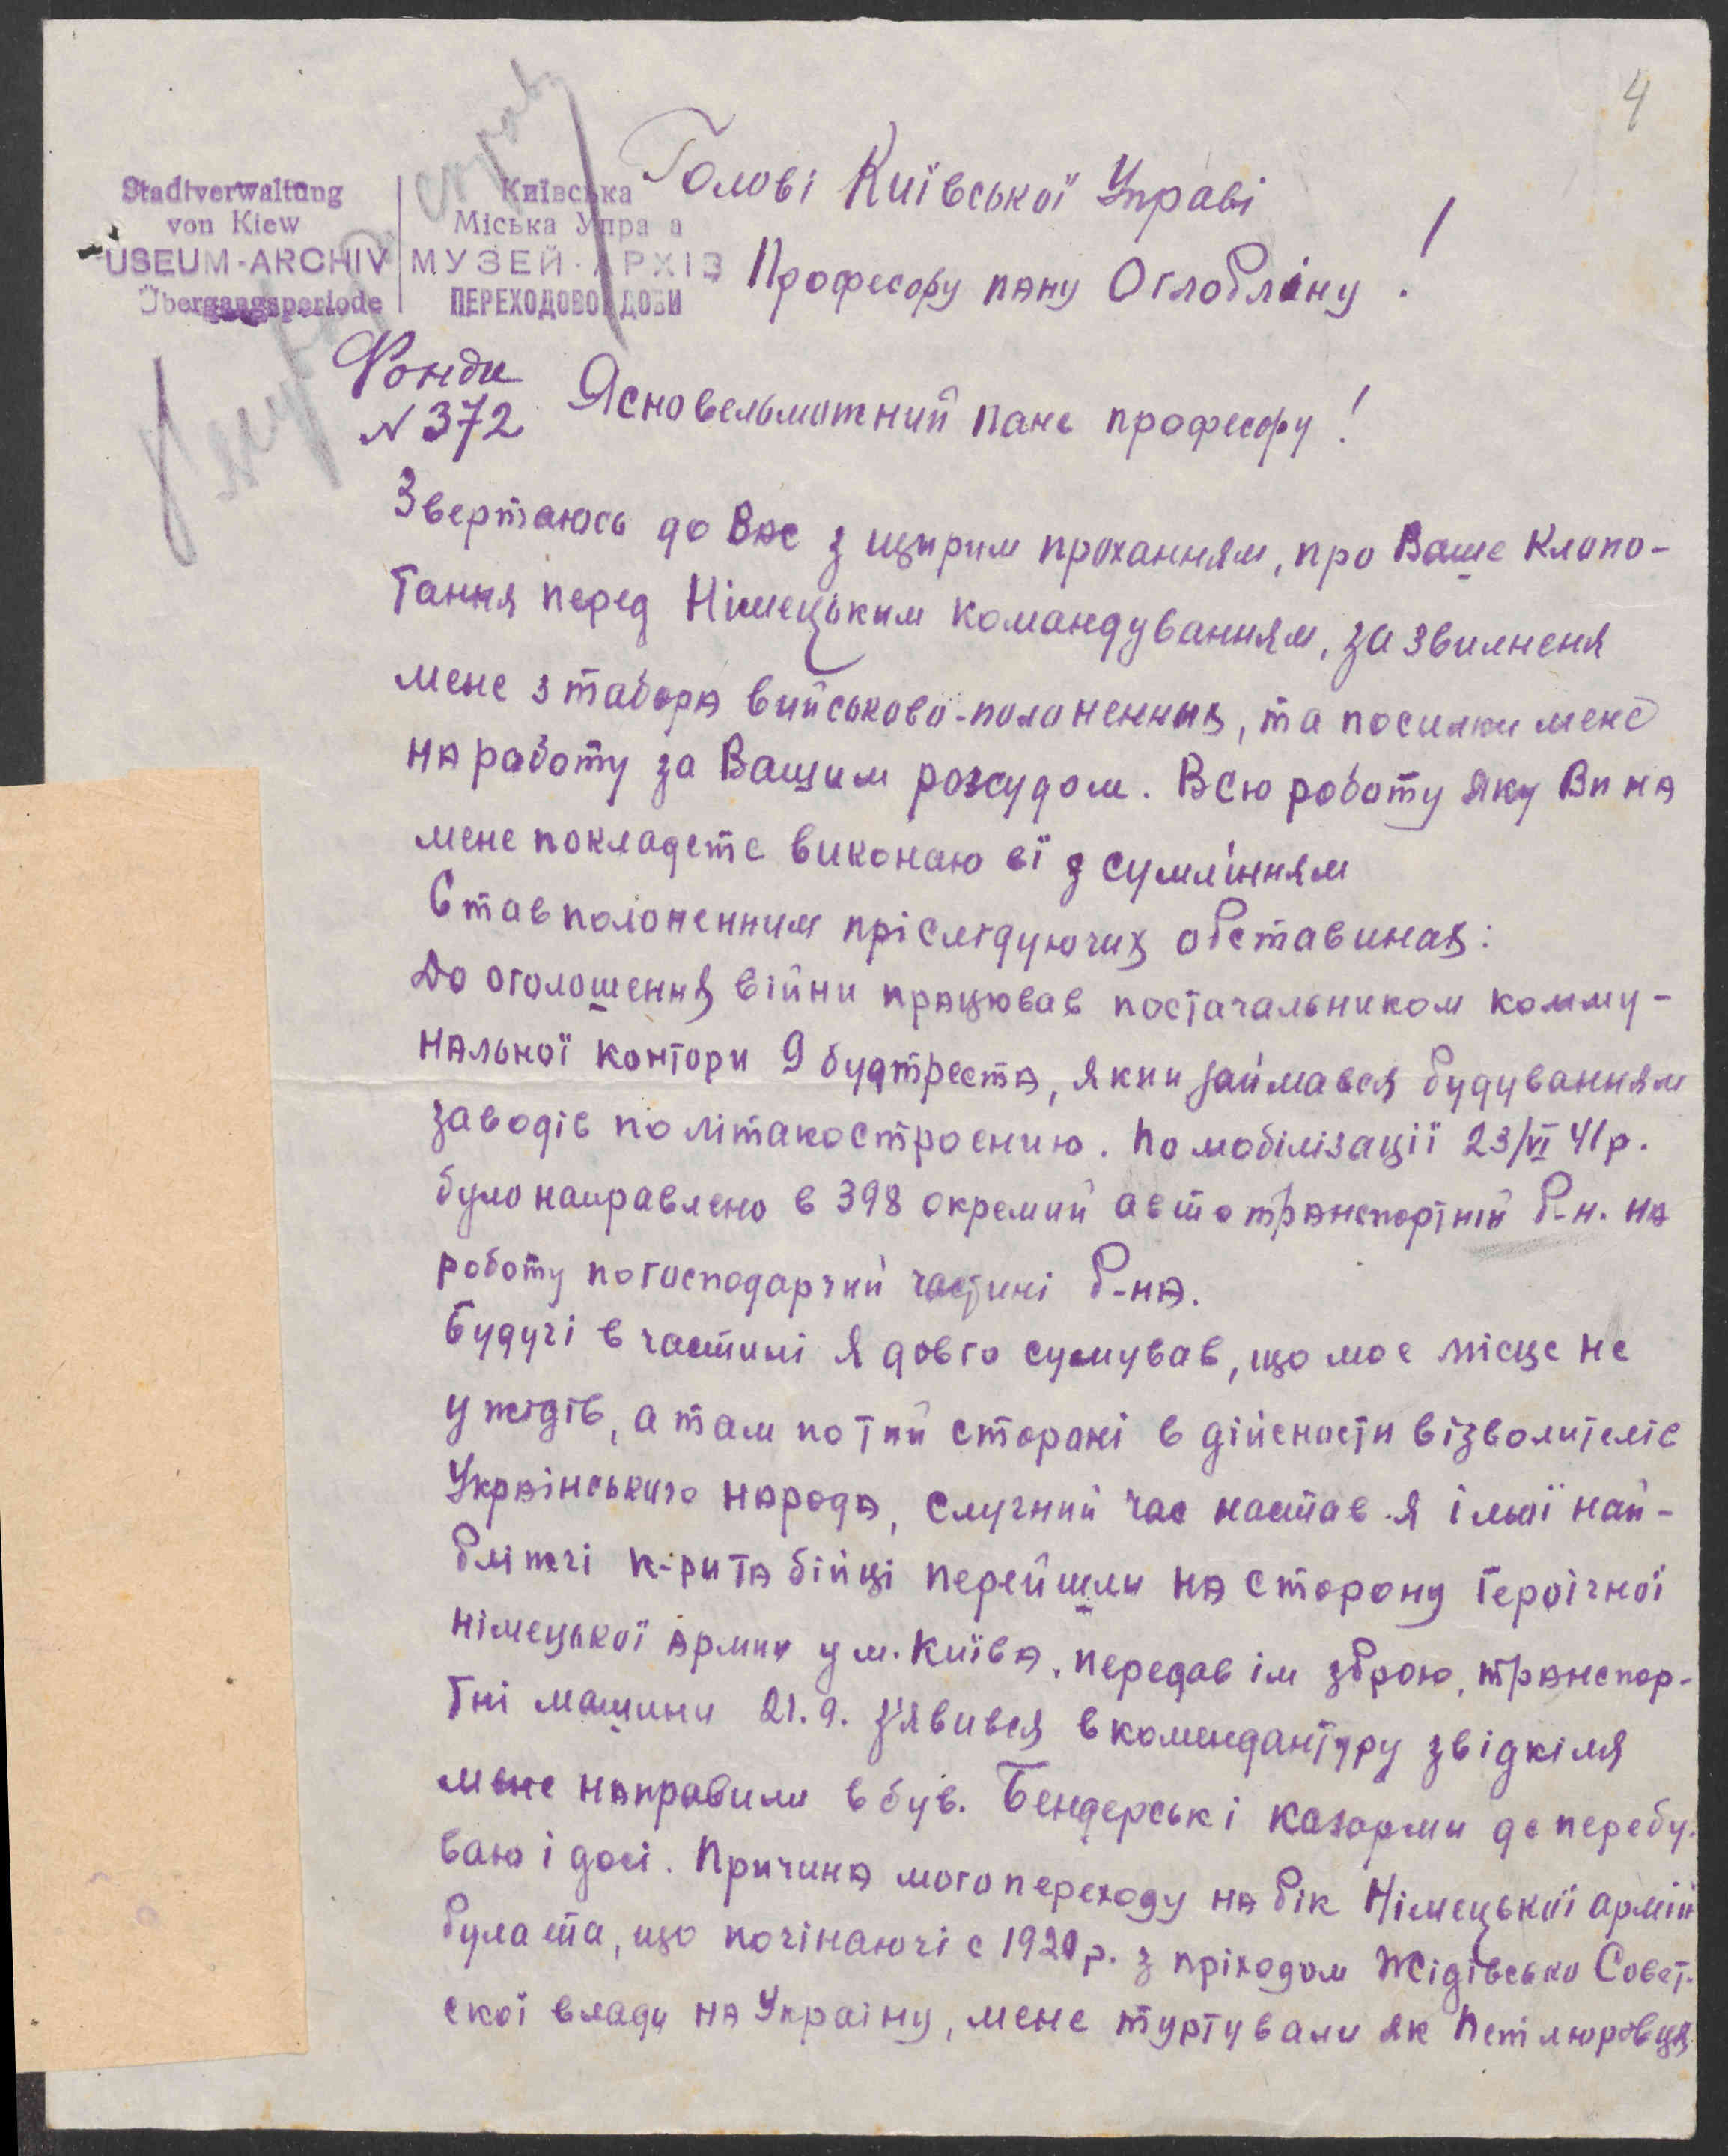 4
Голові Київської Управі
Професору пану Оглобліну!
Stadtverwaltung
von Kiew
USEUM-ARCHIV
Übergangsperiode
Київська
Міська Упра а
МУЗЕЙ-АРХІВ
ПЕРЕХОДОВОЇ ДОБИ
Фонди
N 372
Ясновельможний пане професору!
Звертаюсь до Вас з щирим проханням, про Ваше клопо-
тання перед Німецьким командуванням, за звилненя
мене з табора вийськово-полоненных, та посилки мене
на работу за Вашим розсудом. Всю роботу яку Ви на
мене покладете виконаю еї з сумлінням
Став полоненним прі слєдуючих обставинах:
До оголошення війни працював постачальником комму-
нальної контори 9 будтреста, який займався будуванням
заводів по літакостроєнию. По мобілізації 23/VI 41р.
було направлено в 398 окремий автотранспортній б-н. на
роботу по господарчий частині б-на.
Будучі в частині я довго сумував, що моє місце не
у жідів, а там по тий сторані в дійсности візволителів
Українського народа, случний час настав я і мої най-
бліжчі к-ри та бійці перейшли на сторону героічної
німецької армии у м. Київа, передав ім зброю, транспор-
тні машини 21.9. з'явився в комендантуру звідкіля
мене направили в був. Бендерські казарми де перебу-
ваю і досі. Причина мого переходу на бік Німецької армій
була та, що почінаючі с 1920 р. з пріходом Жідівсько Совет-
скої влади на Україну, мене туртували як Петлюровця